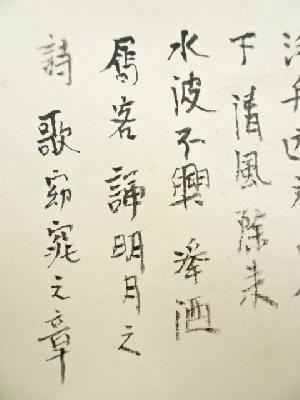 泛舟遊於
下清風徐來
水波不興舉酒
屬客誦明月之
詩歌窈窕之章